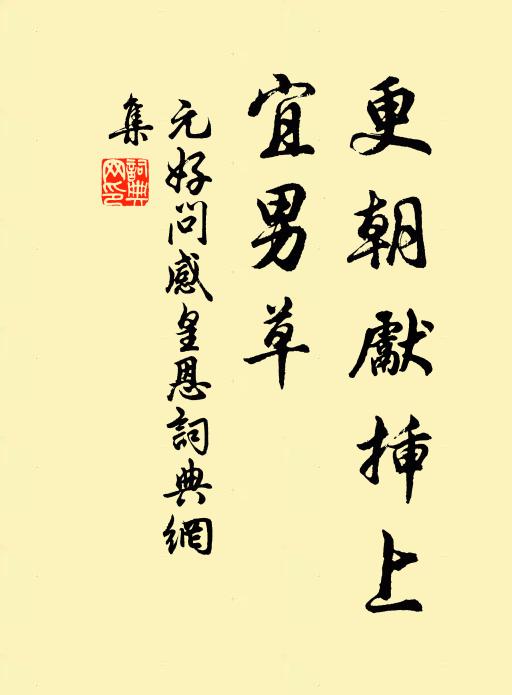 更朝獻揷上
宜男草
元好问感皇恩詞典網
集
詞典網印